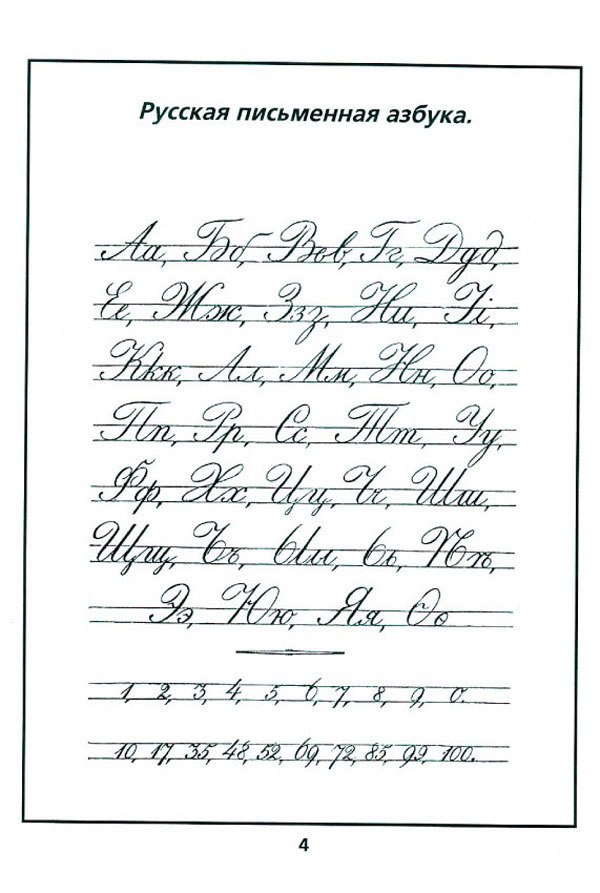 Русская письменная азбука.
Аа, Бб, Ввв, Гг, Ддд,
Ее, Жж, Ззз, Ии, Іі,
Ккк, Лл, Мм, Нн, Оо,
Пп, Рр, Сс, Тт, Уу,
Фф, Хх, Цц, Чч, Шш,
Щщ, Ъъ, Ыы, Ьь, Ѣѣ,
Ээ, Юю, Яя, Ѳѳ
1, 2, 3, 4, 5, 6, 7, 8, 9, 0.
10, 17, 35, 48, 52, 69, 72, 85, 99, 100.
4